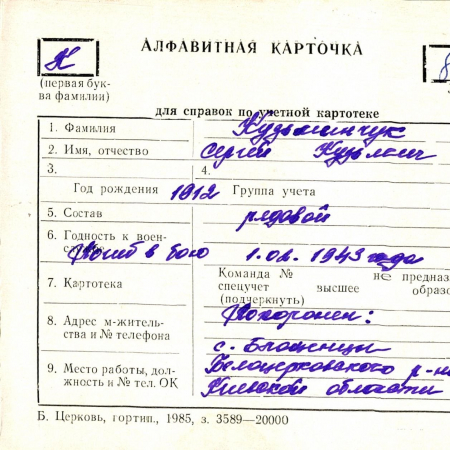 АЛФАВИТНАЯ КАРТОЧКА
К
(первая бук-
ва фамилии)
для справок по учетной картотеке
1. Фамилия Кузьминчук
2. Имя, отчество Сергей Кузьмич
3. 4.
Год рождения 1912 Группа учета
5. Состав рядовой
6. Годность к воен-
Погиб в бою 1.02.1943 года
Команда № не предназ
7. Картотека спецучет высшее образо
(подчеркнуть)
8. Адрес м-житель- Похоронен:
ства и № телефона
с.
9. Место работы, дол- Белоцерковского р-на
жность и № тел. ОК Киевской области
Б. Церковь, гортип., 1985, з. 3589—20000